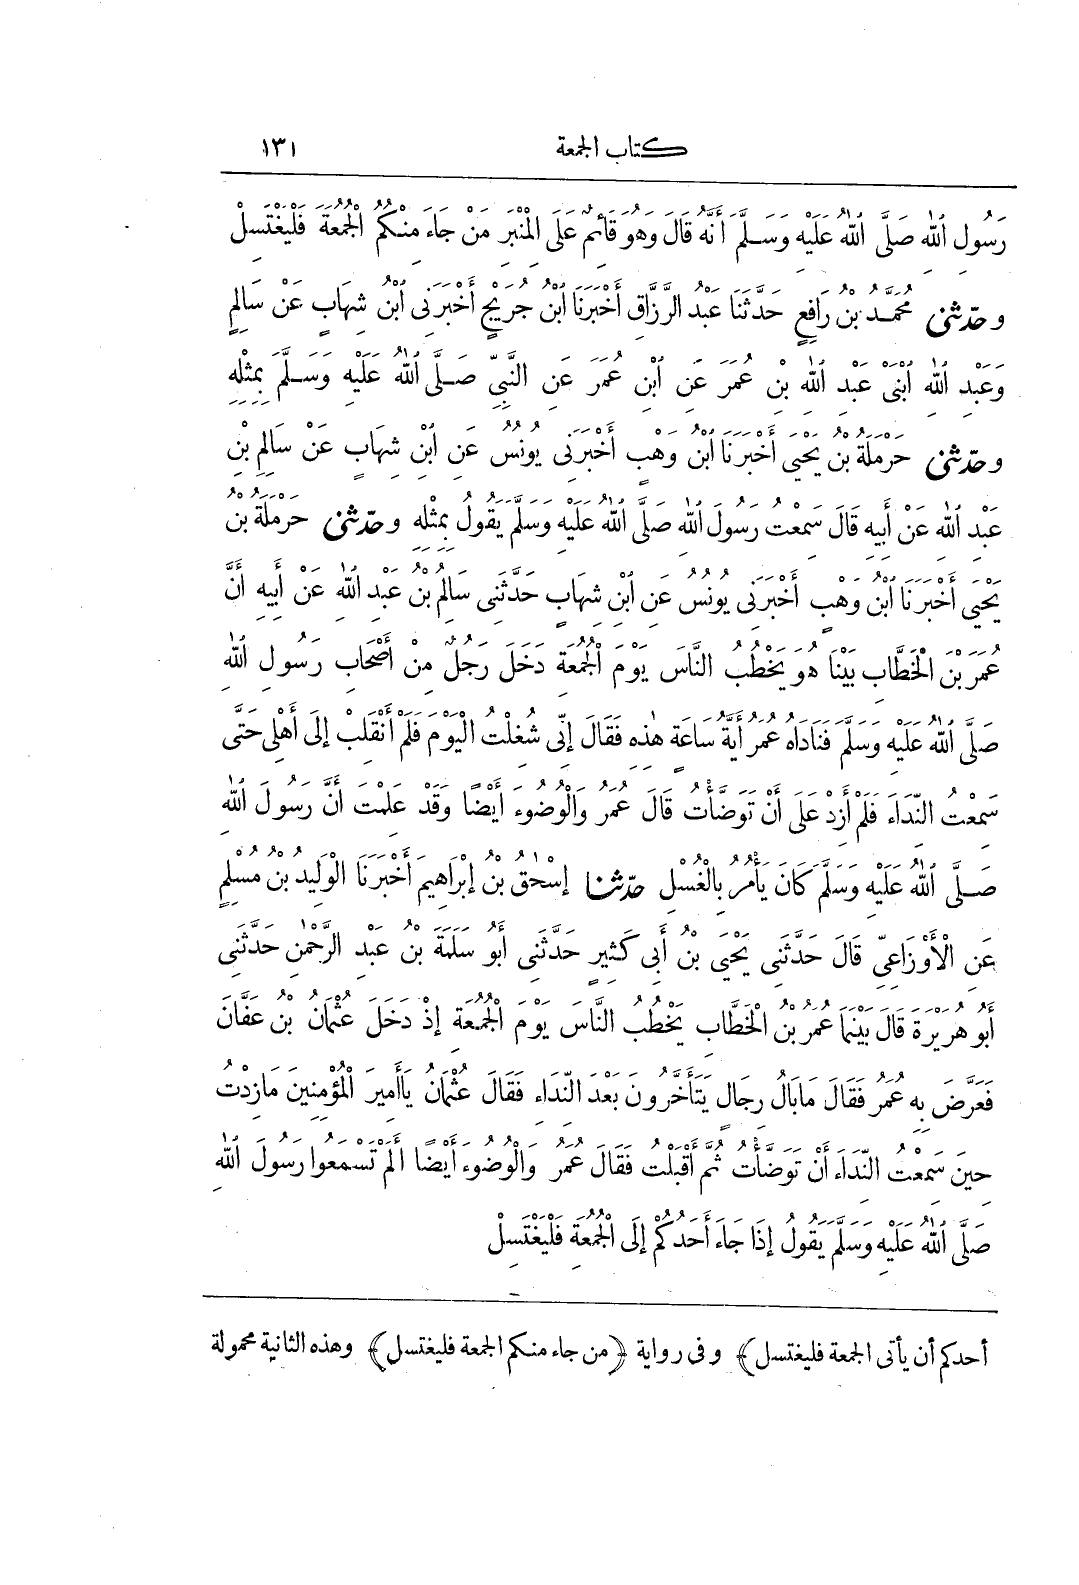 كتاب الجمعة ١٣١
رَسُولِ اللهِ صَلَّى اللهُ عَلَيْهِ وَسَلَّمَ أَنَّهُ قَالَ وَهُوَ قَائِمٌ عَلَى الْمِنْبَرِ مَنْ جَاءَ مِنْكُمُ الْجُمُعَةَ فَلْيَغْتَسِلْ
وحدثني مُحَمَّدُ بْنُ رَافِعٍ حَدَّثَنَا عَبْدُ الرَّزَّاقِ أَخْبَرَنَا ابْنُ جُرَيْجٍ أَخْبَرَنِي ابْنُ شِهَابٍ عَنْ سَالِمٍ
وَعَبْدِ اللهِ ابْنَيْ عَبْدِ اللهِ بْنِ عُمَرَ عَنِ ابْنِ عُمَرَ عَنِ النَّبِيِّ صَلَّى اللهُ عَلَيْهِ وَسَلَّمَ بِمِثْلِهِ
وحدثني حَرْمَلَةُ بْنُ يَحْيَى أَخْبَرَنَا ابْنُ وَهْبٍ أَخْبَرَنِي يُونُسُ عَنِ ابْنِ شِهَابٍ عَنْ سَالِمِ بْنِ
عَبْدِ اللهِ عَنْ أَبِيهِ قَالَ سَمِعْتُ رَسُولَ اللهِ صَلَّى اللهُ عَلَيْهِ وَسَلَّمَ يَقُولُ بِمِثْلِهِ وحدثني حَرْمَلَةُ بْنُ
يَحْيَى أَخْبَرَنَا ابْنُ وَهْبٍ أَخْبَرَنِي يُونُسُ عَنِ ابْنِ شِهَابٍ حَدَّثَنِي سَالِمُ بْنُ عَبْدِ اللهِ عَنْ أَبِيهِ أَنَّ
عُمَرَ بْنَ الْخَطَّابِ بَيْنَا هُوَ يَخْطُبُ النَّاسَ يَوْمَ الْجُمُعَةِ دَخَلَ رَجُلٌ مِنْ أَصْحَابِ رَسُولِ اللهِ
صَلَّى اللهُ عَلَيْهِ وَسَلَّمَ فَنَادَاهُ عُمَرُ أَيَّةُ سَاعَةٍ هٰذِهِ فَقَالَ إِنِّي شُغِلْتُ الْيَوْمَ فَلَمْ أَنْقَلِبْ إِلَى أَهْلِي حَتَّى
سَمِعْتُ النِّدَاءَ فَلَمْ أَزِدْ عَلَى أَنْ تَوَضَّأْتُ قَالَ عُمَرُ وَالْوُضُوءَ أَيْضًا وَقَدْ عَلِمْتَ أَنَّ رَسُولَ اللهِ
صَلَّى اللهُ عَلَيْهِ وَسَلَّمَ كَانَ يَأْمُرُ بِالْغُسْلِ حدثنا إِسْحٰقُ بْنُ إِبْرَاهِيمَ أَخْبَرَنَا الْوَلِيدُ بْنُ مُسْلِمٍ
عَنِ الْأَوْزَاعِيِّ قَالَ حَدَّثَنِي يَحْيَى بْنُ أَبِي كَثِيرٍ حَدَّثَنِي أَبُو سَلَمَةَ بْنُ عَبْدِ الرَّحْمٰنِ حَدَّثَنِي
أَبُو هُرَيْرَةَ قَالَ بَيْنَمَا عُمَرُ بْنُ الْخَطَّابِ يَخْطُبُ النَّاسَ يَوْمَ الْجُمُعَةِ إِذْ دَخَلَ عُثْمَانُ بْنُ عَفَّانَ
فَعَرَّضَ بِهِ عُمَرُ فَقَالَ مَا بَالُ رِجَالٍ يَتَأَخَّرُونَ بَعْدَ النِّدَاءِ فَقَالَ عُثْمَانُ يَاأَمِيرَ الْمُؤْمِنِينَ مَازِدْتُ
حِينَ سَمِعْتُ النِّدَاءَ أَنْ تَوَضَّأْتُ ثُمَّ أَقْبَلْتُ فَقَالَ عُمَرُ وَالْوُضُوءَ أَيْضًا أَلَمْ تَسْمَعُوا رَسُولَ اللهِ
صَلَّى اللهُ عَلَيْهِ وَسَلَّمَ يَقُولُ إِذَا جَاءَ أَحَدُكُمْ إِلَى الْجُمُعَةِ فَلْيَغْتَسِلْ
أحدكم أن يأتى الجمعة فليغتسل) وفى رواية (من جاء منكم الجمعة فليغتسل) وهذه الثانية محمولة